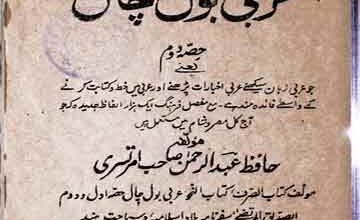 عربی بول چال
حصہ دوم
یعنے
جو عربی زبان سیکھنے عربی اخبارات پڑھنے اور عربی میں خط و کتابت کرنے
کے واسطے فائدہ مند ہے۔ مع مفصل فرہنگ ایک ہزار الفاظ جدیدہ کے جو
آج کل مصر و شام میں مستعمل ہیں
مؤلفہ
حافظ عبدالرحمٰن صاحب امرتسری
مؤلف کتاب الصرف کتاب النحو عربی بول چال حصہ اول و دوم
سفرنامہ بلاد اسلامیہ و سیاحت ہند